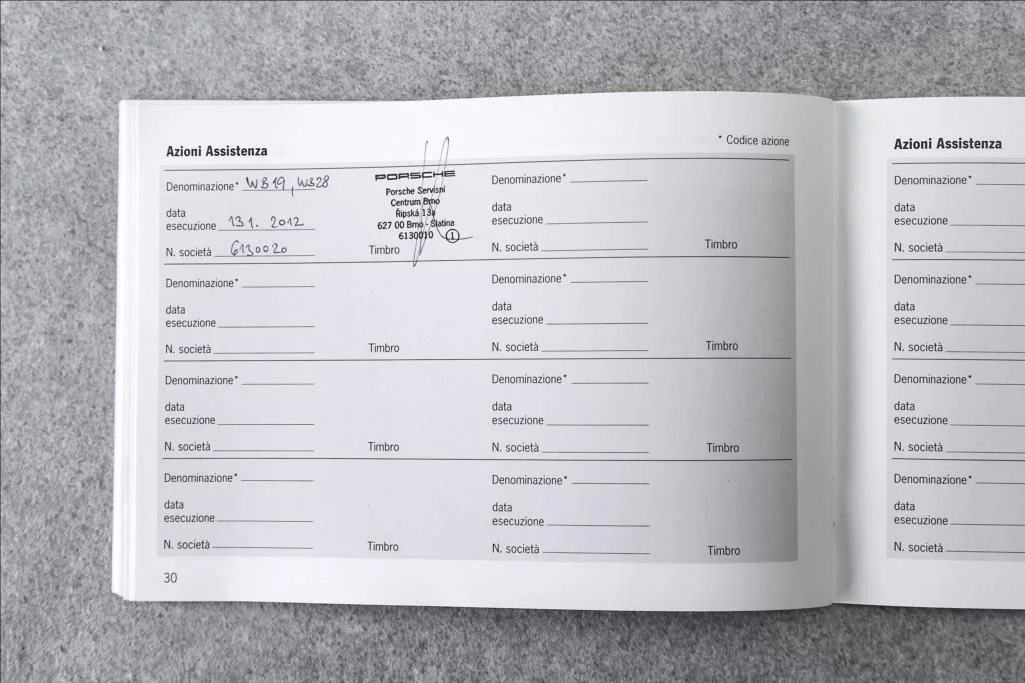 Azioni Assistenza
* Codice azione
Denominazione* WB19, WB28
data
esecuzione 13.1. 2012
N. società 6130020
PORSCHE
Porsche Servisní
Centrum Brno
Řípská 13a
627 00 Brno - Slatina
6130010 1
Timbro
Denominazione*
data
esecuzione
N. società
Timbro
Denominazione*
data
esecuzione
N. società
Timbro
Denominazione*
data
esecuzione
N. società
Timbro
Denominazione*
data
esecuzione
N. società
Timbro
Denominazione*
data
esecuzione
N. società
Timbro
Denominazione*
data
esecuzione
N. società
Timbro
Denominazione*
data
esecuzione
N. società
Timbro
30
Azioni Assistenza
Denominazione*
data
esecuzione
N. società
Denominazione*
data
esecuzione
N. società
Denominazione*
data
esecuzione
N. società
Denominazione*
data
esecuzione
N. società